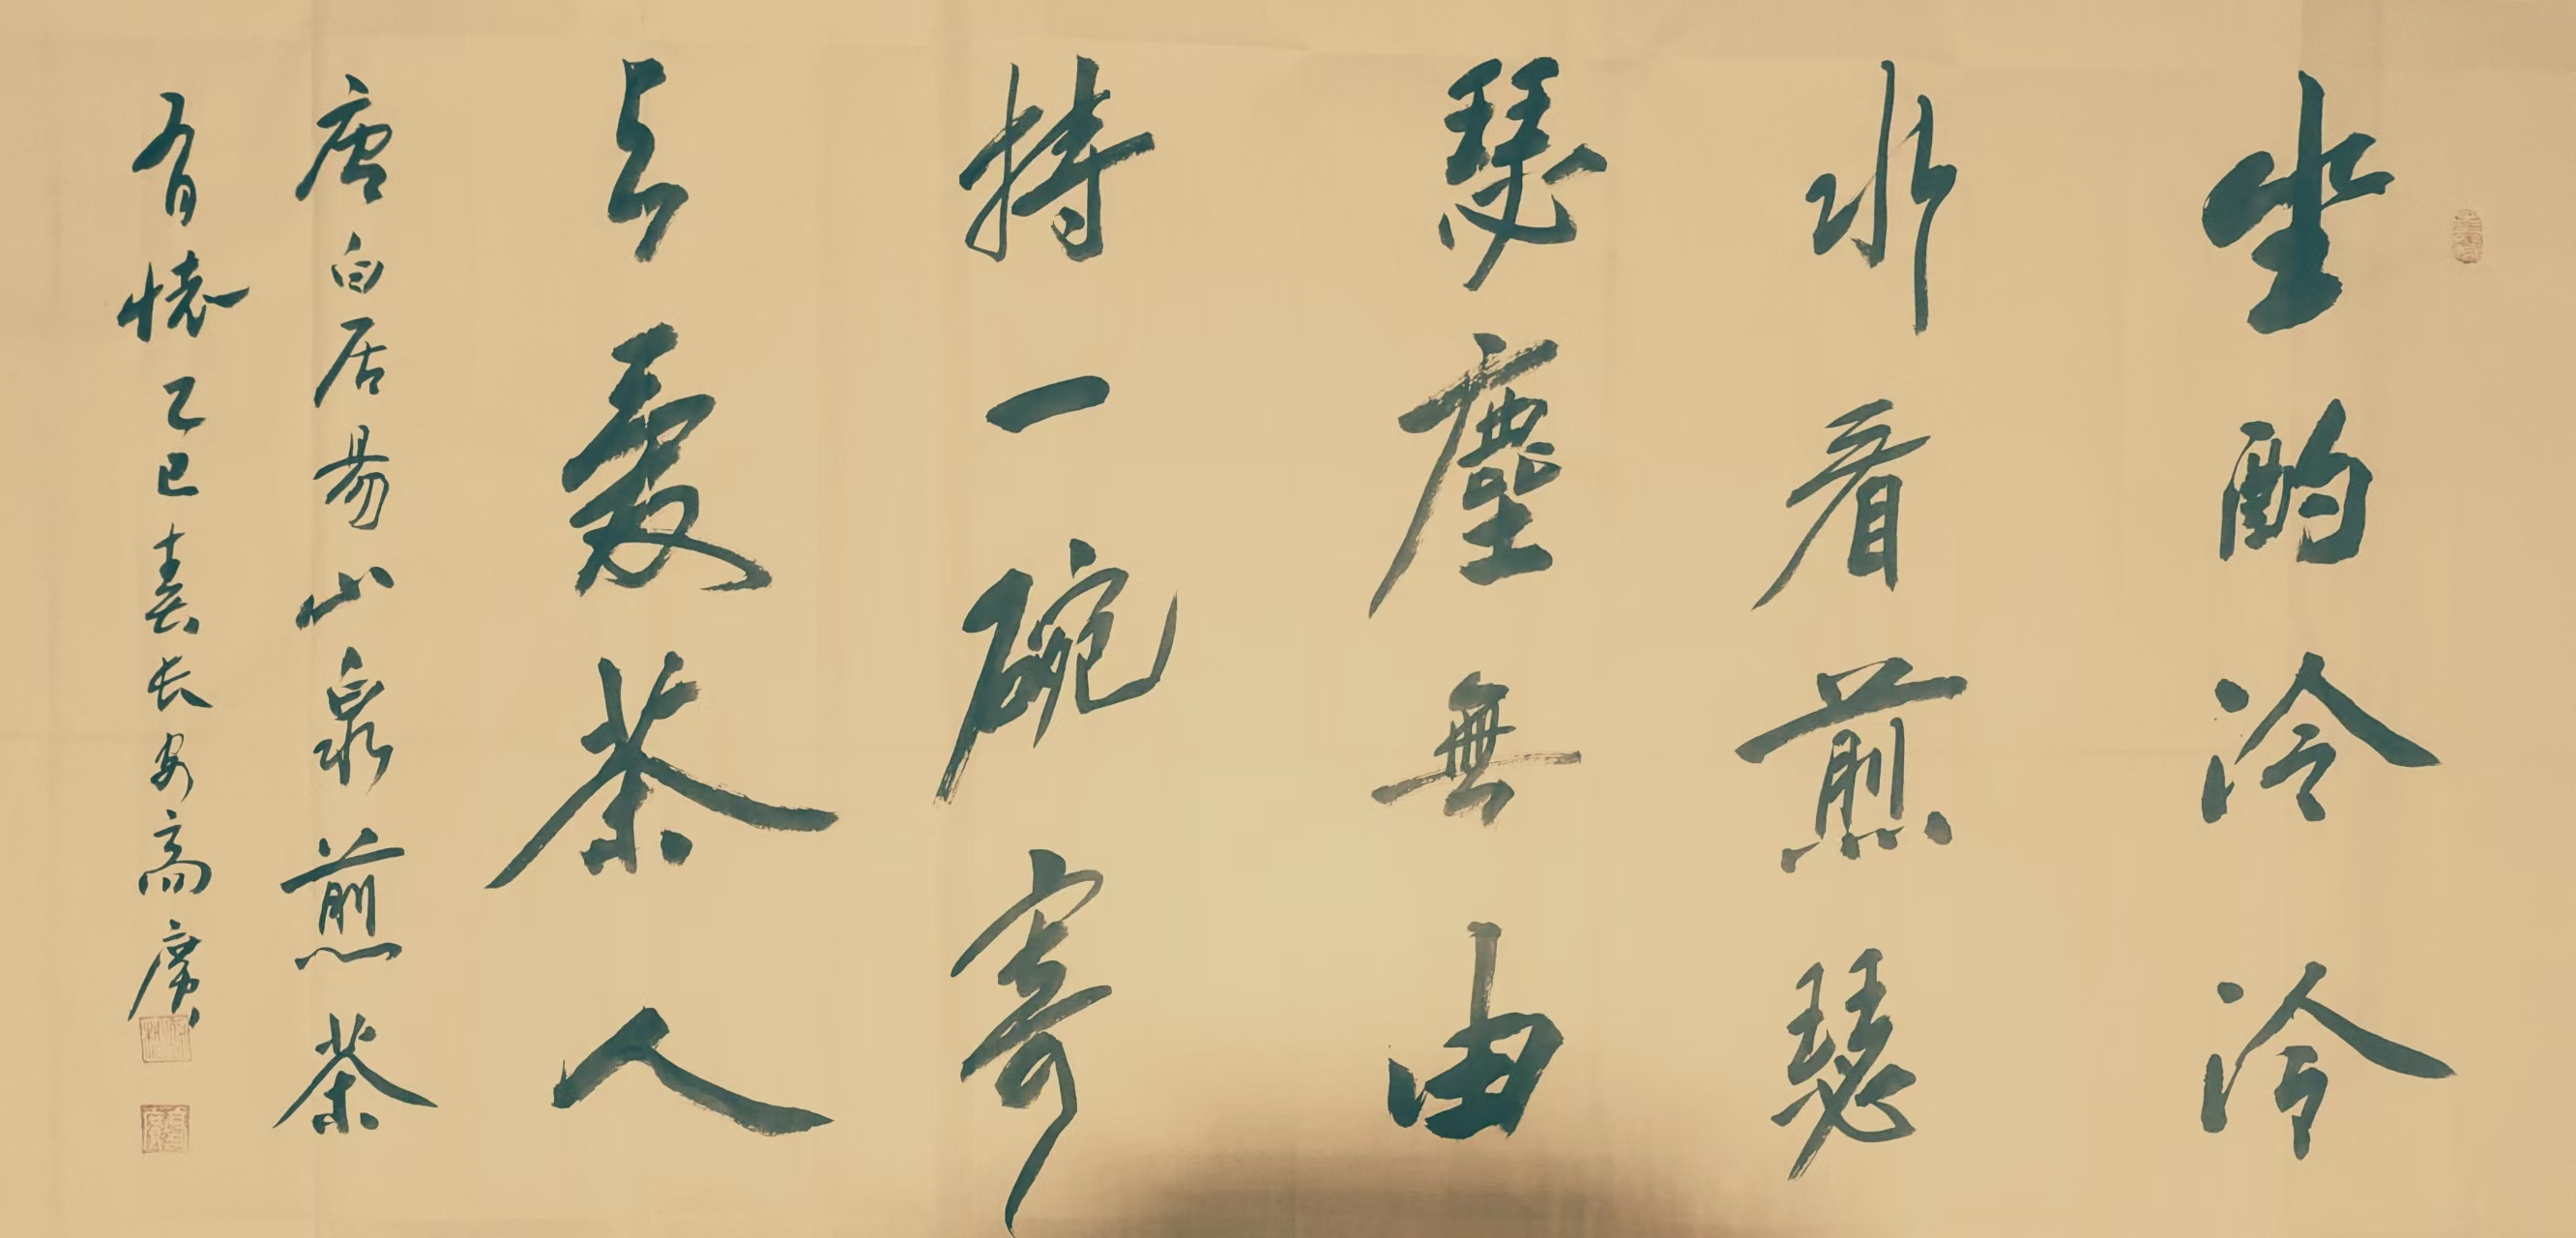 坐酌泠泠
水看煎瑟
瑟塵無由
持一碗寄
与愛茶人
唐白居易山泉煎茶
有懷乙巳春长安高廣